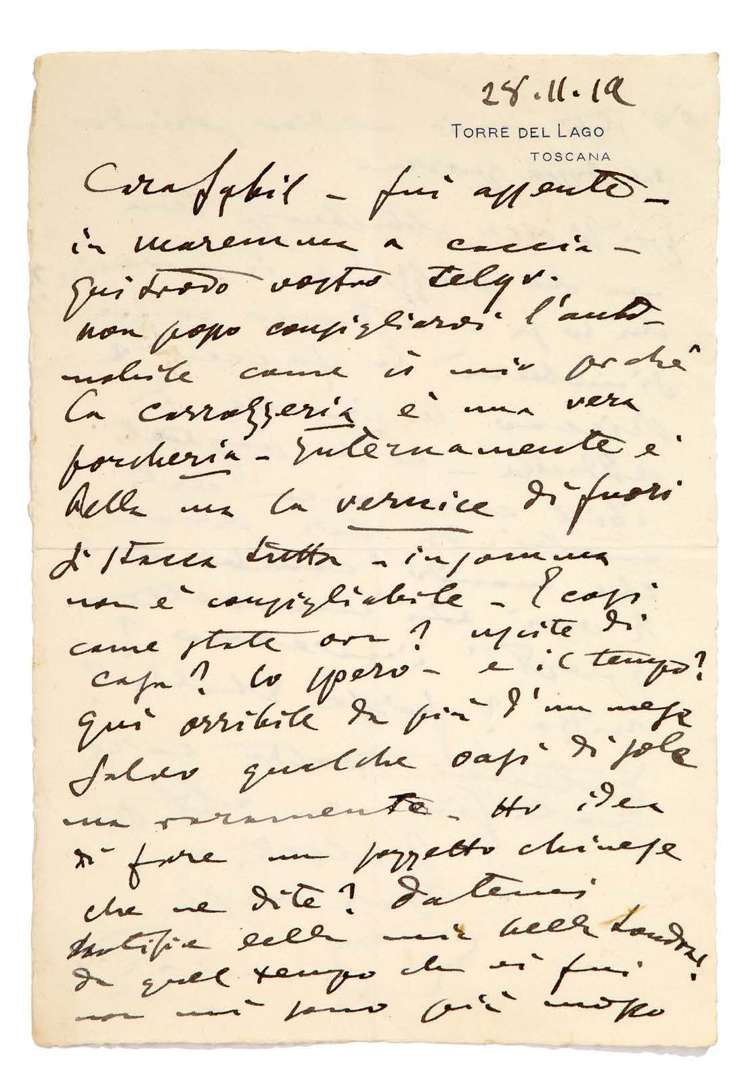 28.11.19
TORRE DEL LAGO
TOSCANA
Cara Sybil – fui assente –
in maremma a caccia –
Qui trovo vostro telegr.
non posso consigliarvi l'auto-
mobile come il mio perchè
la carrozzeria è una vera
porcheria – Internamente è
bella ma la vernice di fuori
si stacca tutta – insomma
non è consigliabile – E così
come state ora? uscite di
casa? lo spero – e il tempo?
Qui orribile da più d'un mese
salvo qualche oasi di sole
ma raramente – Ho idea
di fare un soggetto chinese
che ne dite? Datemi
notizie della mia bella Londra!
da quel tempo che vi fui
non mi sono più mosso